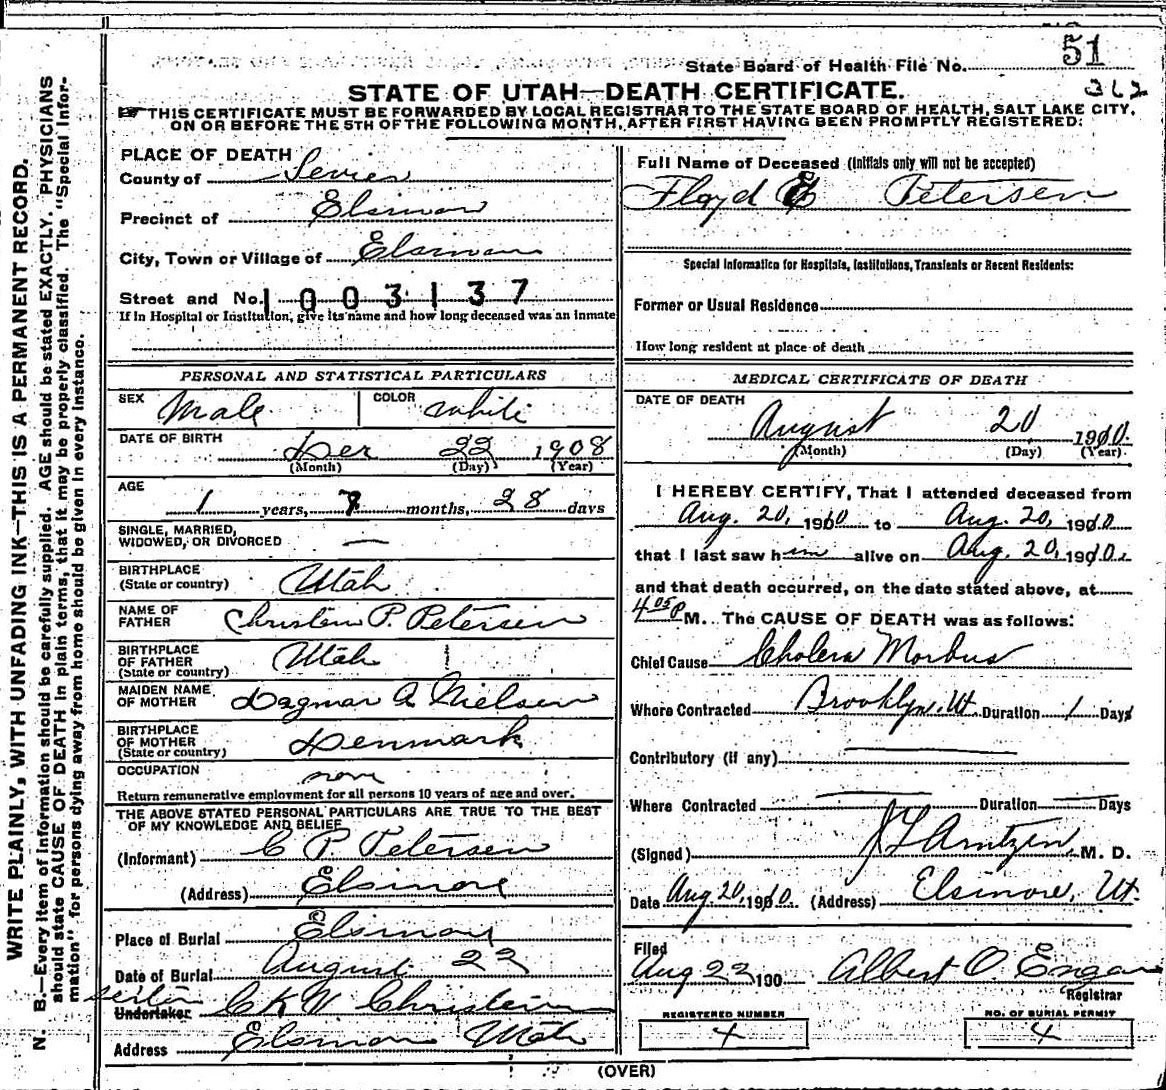 State Board of Health File No. 51
362
STATE OF UTAH—DEATH CERTIFICATE.
THIS CERTIFICATE MUST BE FORWARDED BY LOCAL REGISTRAR TO THE STATE BOARD OF HEALTH, SALT LAKE CITY,
ON OR BEFORE THE 5TH OF THE FOLLOWING MONTH, AFTER FIRST HAVING BEEN PROMPTLY REGISTERED:
WRITE PLAINLY, WITH UNFADING INK—THIS IS A PERMANENT RECORD.
N. B.—Every item of information should be carefully supplied. AGE should be stated EXACTLY. PHYSICIANS
should state CAUSE OF DEATH in plain terms, that it may be properly classified. The "Special Infor-
mation" for persons dying away from home should be given in every instance.
PLACE OF DEATH
County of Sevier
Precinct of Elsinore
City, Town or Village of Elsinore
Street and No. 1003137
If in Hospital or Institution, give its name and how long deceased was an inmate
PERSONAL AND STATISTICAL PARTICULARS
SEX Male COLOR White
DATE OF BIRTH Dec 22 1908
(Month) (Day) (Year)
AGE
1 years, 7 months, 28 days
SINGLE, MARRIED,
WIDOWED, OR DIVORCED —
BIRTHPLACE
(State or country) Utah
NAME OF
FATHER Christen P. Petersen
BIRTHPLACE
OF FATHER
(State or country) Utah
MAIDEN NAME
OF MOTHER Dagmar A Nielsen
BIRTHPLACE
OF MOTHER
(State or country) Denmark
OCCUPATION none
Return remunerative employment for all persons 10 years of age and over.
THE ABOVE STATED PERSONAL PARTICULARS ARE TRUE TO THE BEST
OF MY KNOWLEDGE AND BELIEF
(Informant) C P. Petersen
(Address) Elsinore
Place of Burial Elsinore
Date of Burial August 22
Undertaker
Address Elsinore Utah
Full Name of Deceased (Initials only will not be accepted)
Floyd Petersen
Special Information for Hospitals, Institutions, Transients or Recent Residents:
Former or Usual Residence
How long resident at place of death
MEDICAL CERTIFICATE OF DEATH
DATE OF DEATH
August 20 1910.
(Month) (Day) (Year)
I HEREBY CERTIFY, That I attended deceased from
Aug. 20, 1910 to Aug. 20, 1910
that I last saw him alive on Aug. 20, 1910.
and that death occurred, on the date stated above, at
4 05 P M. The CAUSE OF DEATH was as follows:
Chief Cause Cholera Morbus
Where Contracted Brooklyn, Ut. Duration 1 Days
Contributory (if any)
Where Contracted — Duration — Days
(Signed) M. D.
Date Aug 20, 1910. (Address) Elsinore, Ut.
Filed
Aug 22 190 Albert O Engar
Registrar
REGISTERED NUMBER
4
NO. OF BURIAL PERMIT
4
(OVER)